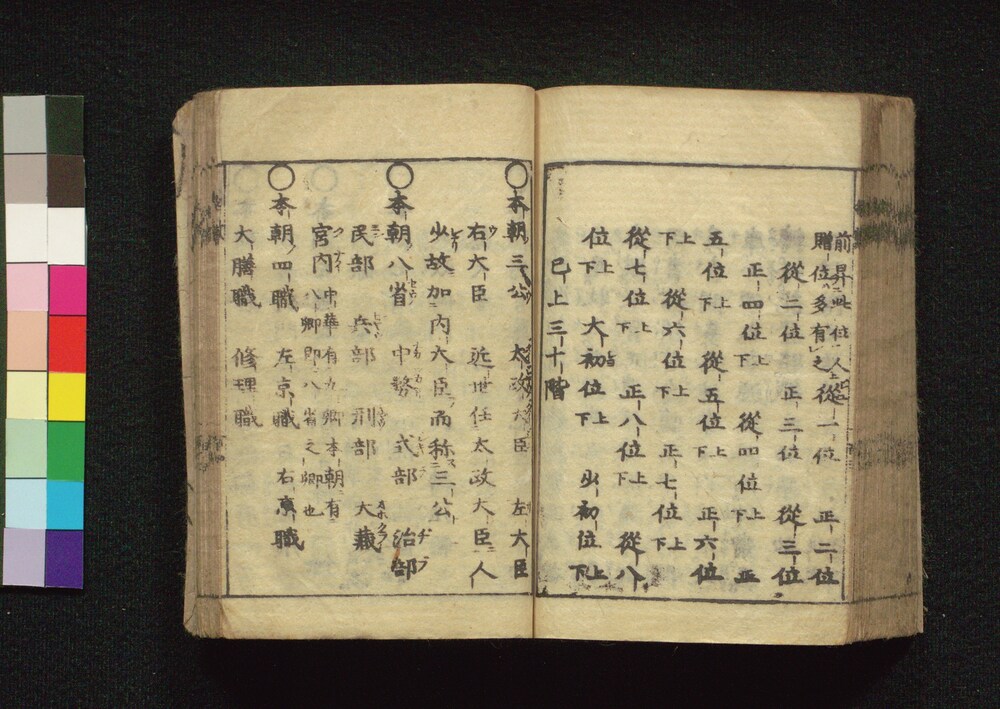 前昇此位人
贈位多有之 從一位 正二位
從二位 正三位 從三位
正四位上下 從四位上下 正
五位上下 從五位上下 正六位
上下 從六位上下 正七位上下
從七位上下 正八位上下 從八
位上下 大初位上下 少初位上下
已上三十階
○本朝三公 太政大臣 左大臣
右大臣 近世任太政大臣人
少故加内大臣而称三公
○本朝八省 中務 式部 治部
民部 兵部 刑部 大藏
宮内 中華有九卿本朝有
八卿即八省之卿也
○本朝四職 左京職 右京職
大膳職 修理職